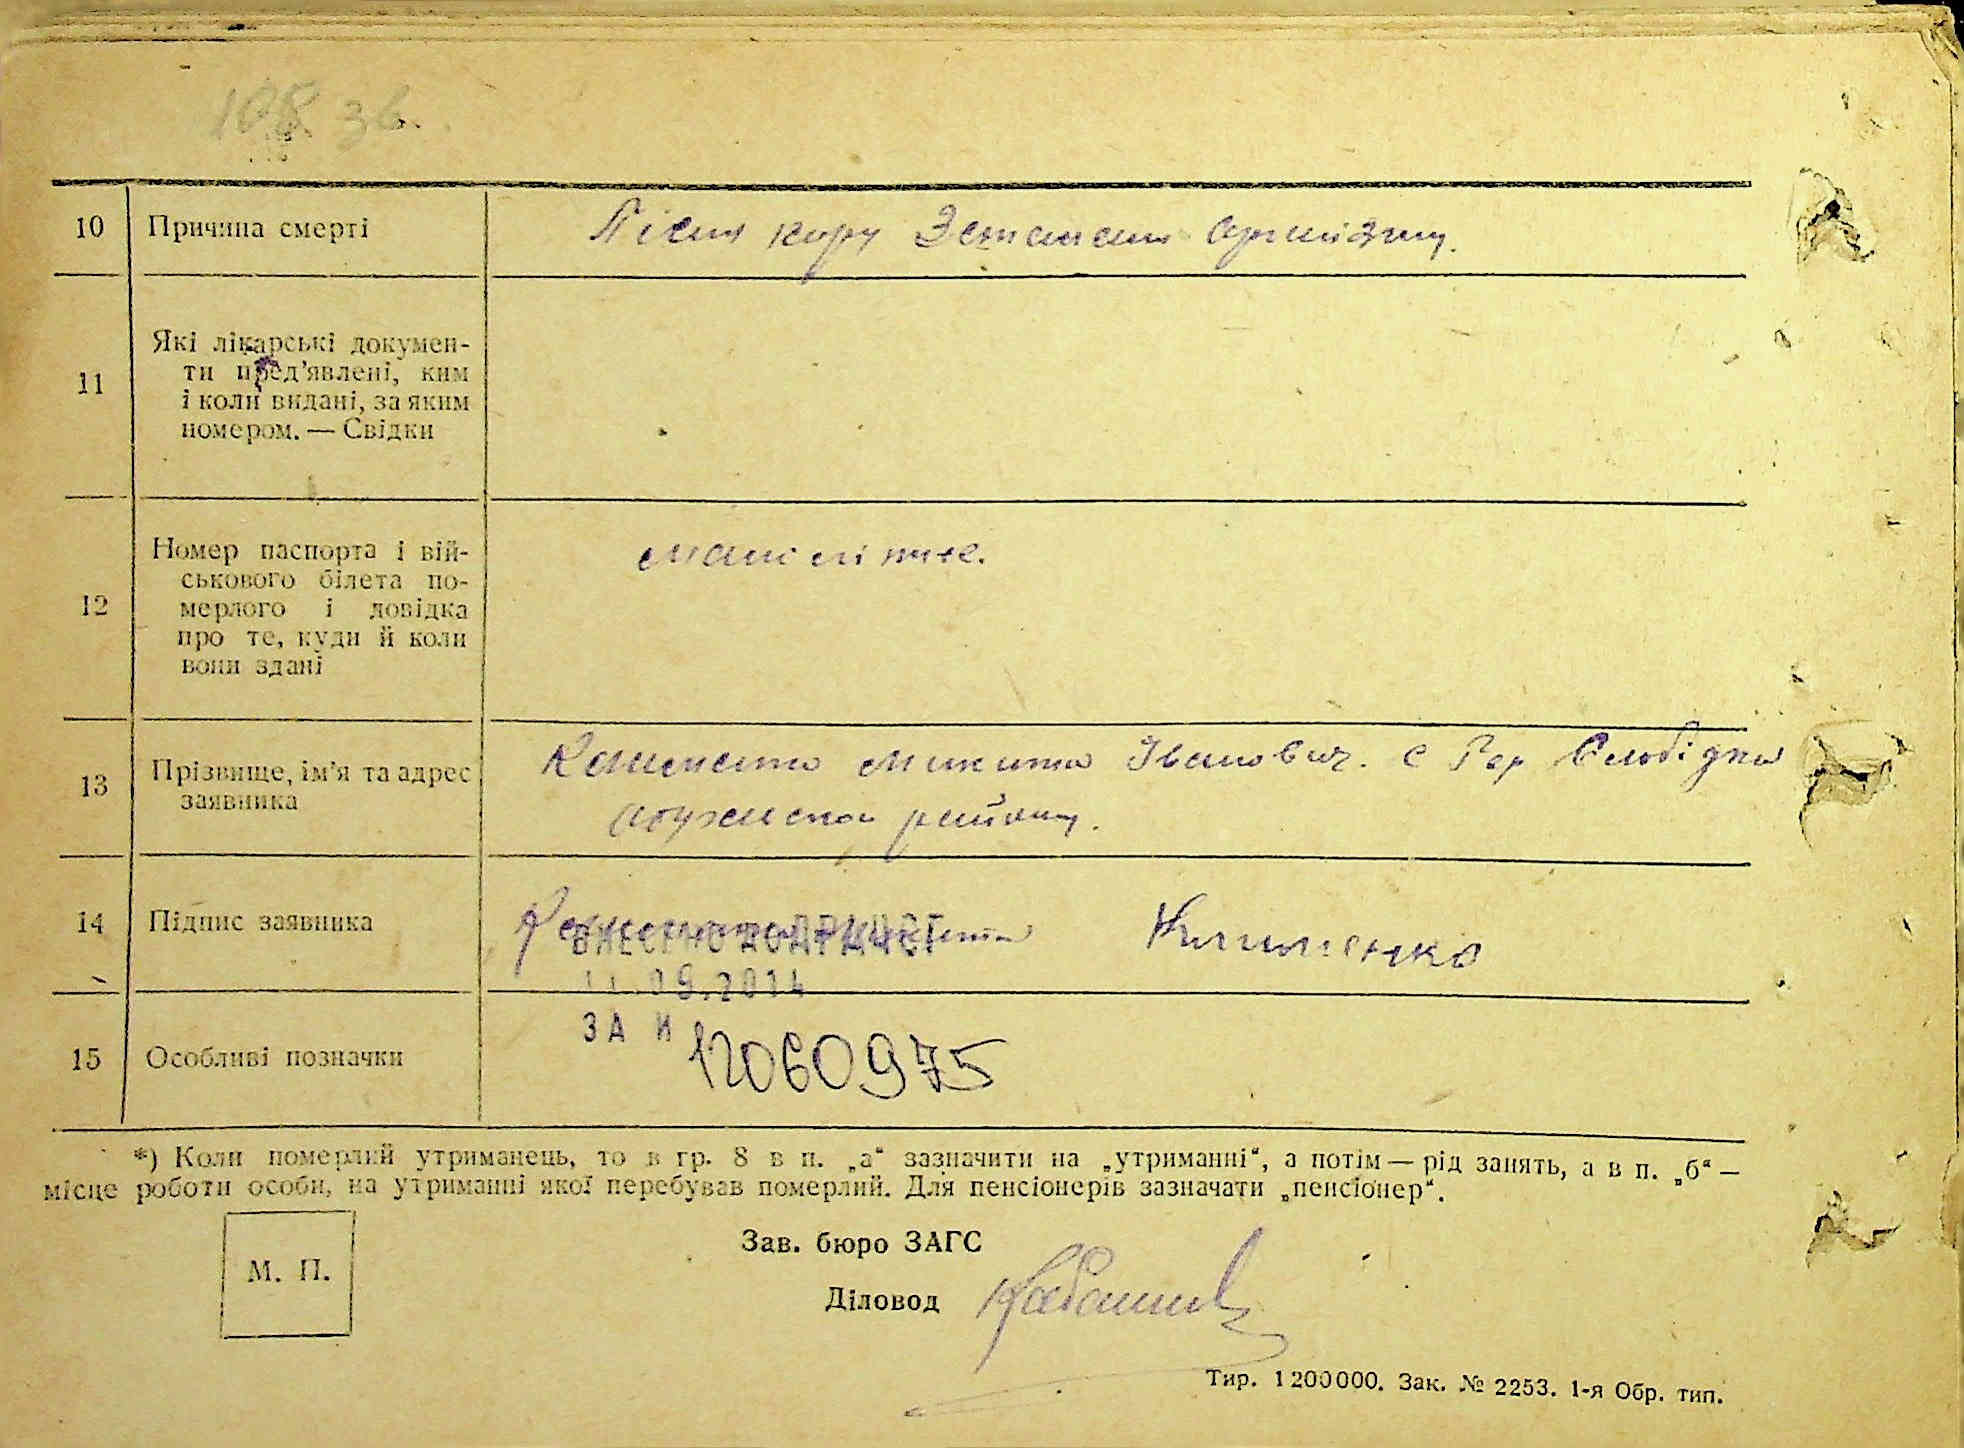 108 зв.
10 Причина смерті Після кору Зста организму.
11 Які лікарські докумен-
ти пред'явлені, ким
і коли видані, за яким
номером. — Свідки
12 Номер паспорта і вій-
ськового білета по-
мерлого і довідка
про те, куди й коли
вони здані
малолітнє.
13 Прізвище, ім'я та адрес
заявника
Микита Іванович. с Слобідка
району.
14 Підпис заявника Клименко
ВНЕСЕНО ДО ДРАЦСГ
11.09.2014
ЗА №
12060975
15 Особливі позначки
*) Коли померлий утриманець, то в гр. 8 в п. „а“ зазначити на „утриманні“, а потім — рід занять, а в п. „б“ —
місце роботи особи, на утриманні якої перебував померлий. Для пенсіонерів зазначати „пенсіонер“.
М. П.
Зав. бюро ЗАГС
Діловод
Тир. 1200000. Зак. № 2253. 1-я Обр. тип.